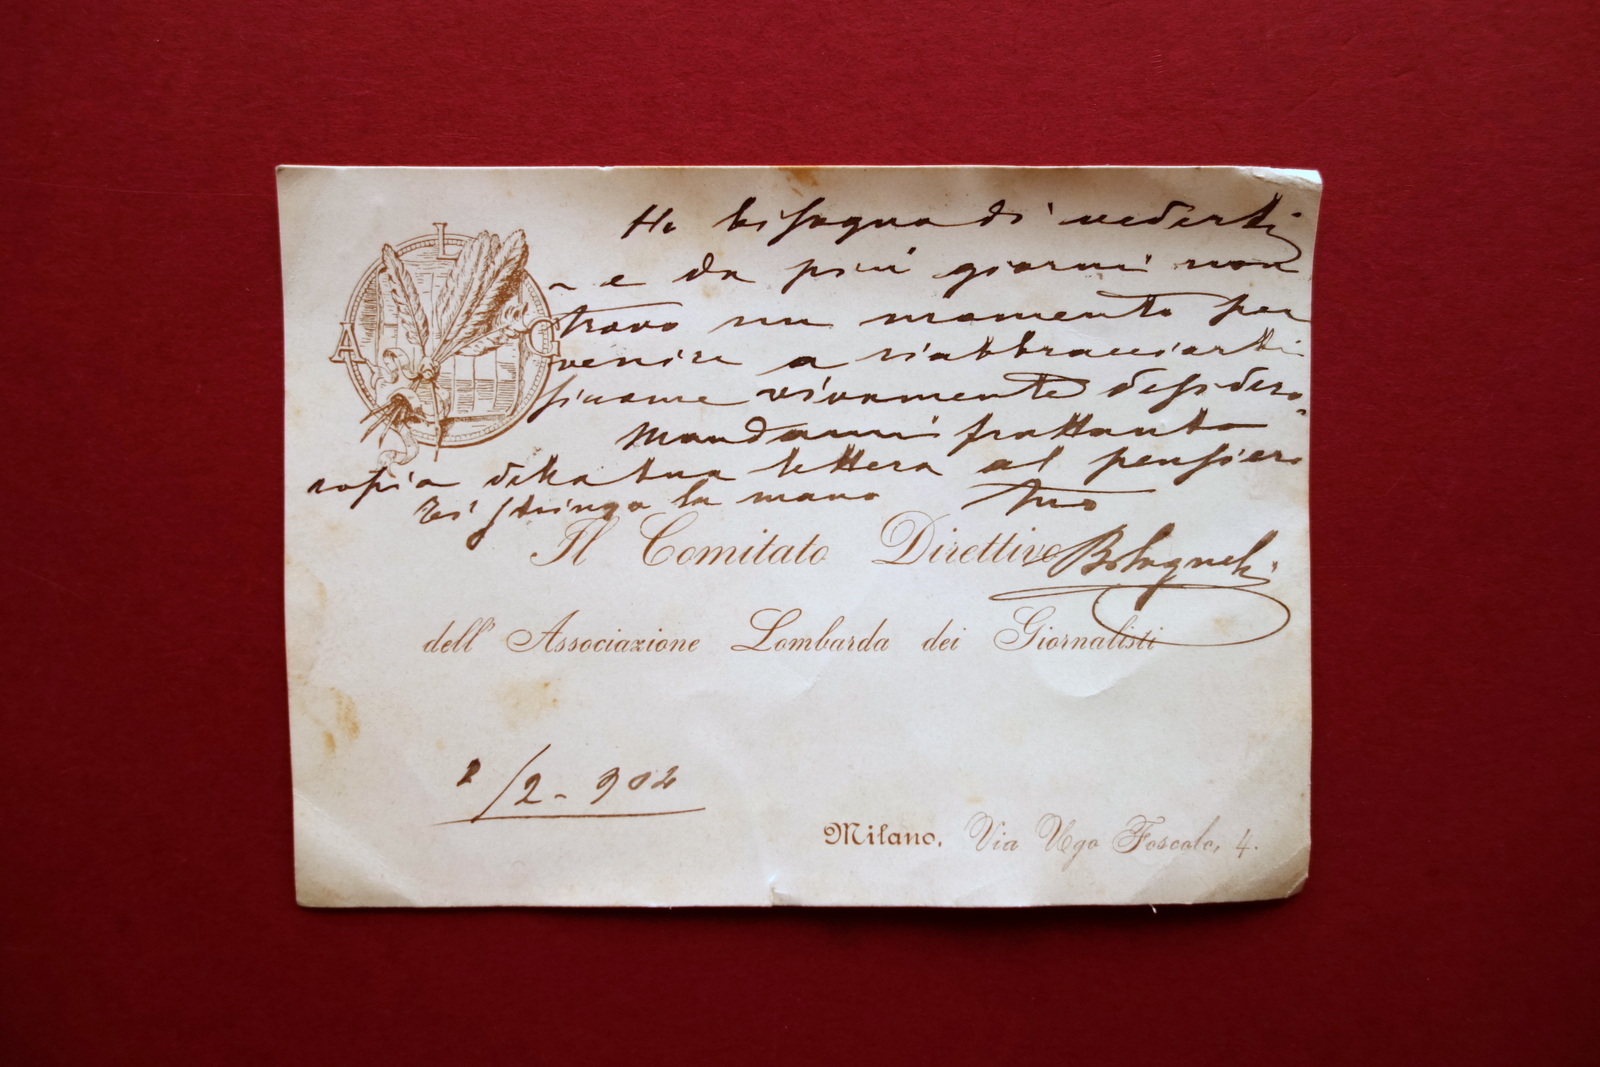 L
A G
Ho bisogno di vederti
e da più giorni non
trovo un momento per
venire a riabbracciarti
siccome vivamente desidero.
Mandami frattanto
copia della tua lettera al pensiero
Ti stringo la mano Tuo
Il Comitato Direttivo
dell' Associazione Lombarda dei Giornalisti
/2 - 904
Milano, Via Ugo Foscolo, 4.